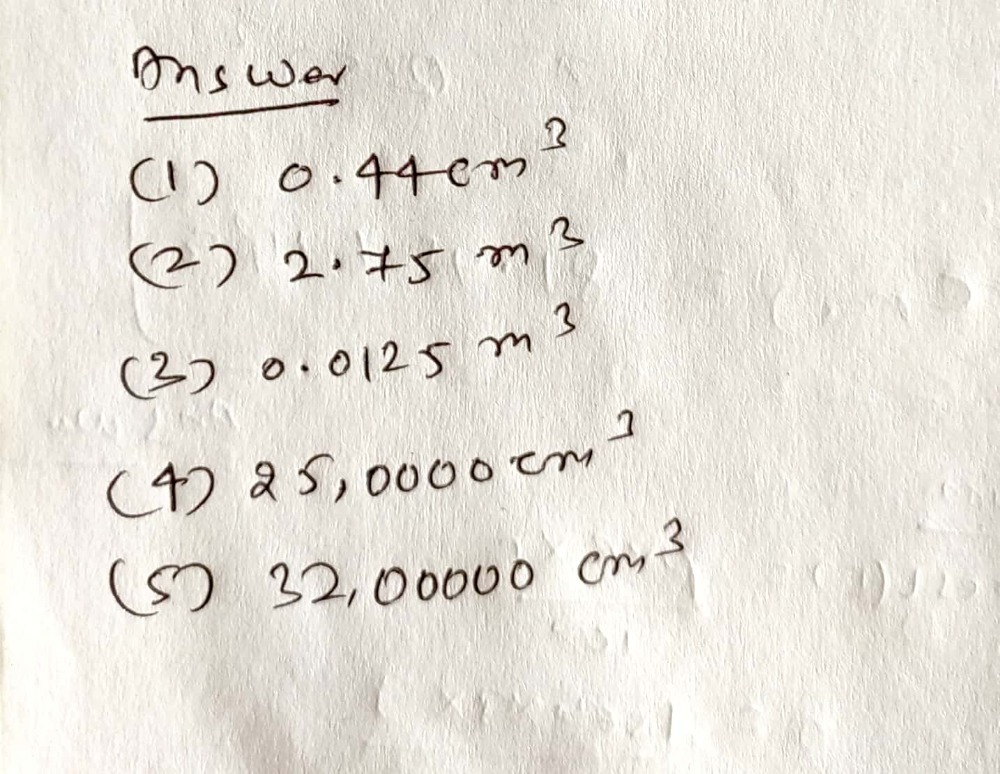 Answer
(1) 0.44cm³
(2) 2.75 m³
(3) 0.0125 m³
(4) 25,0000 cm³
(5) 32,00000 cm³